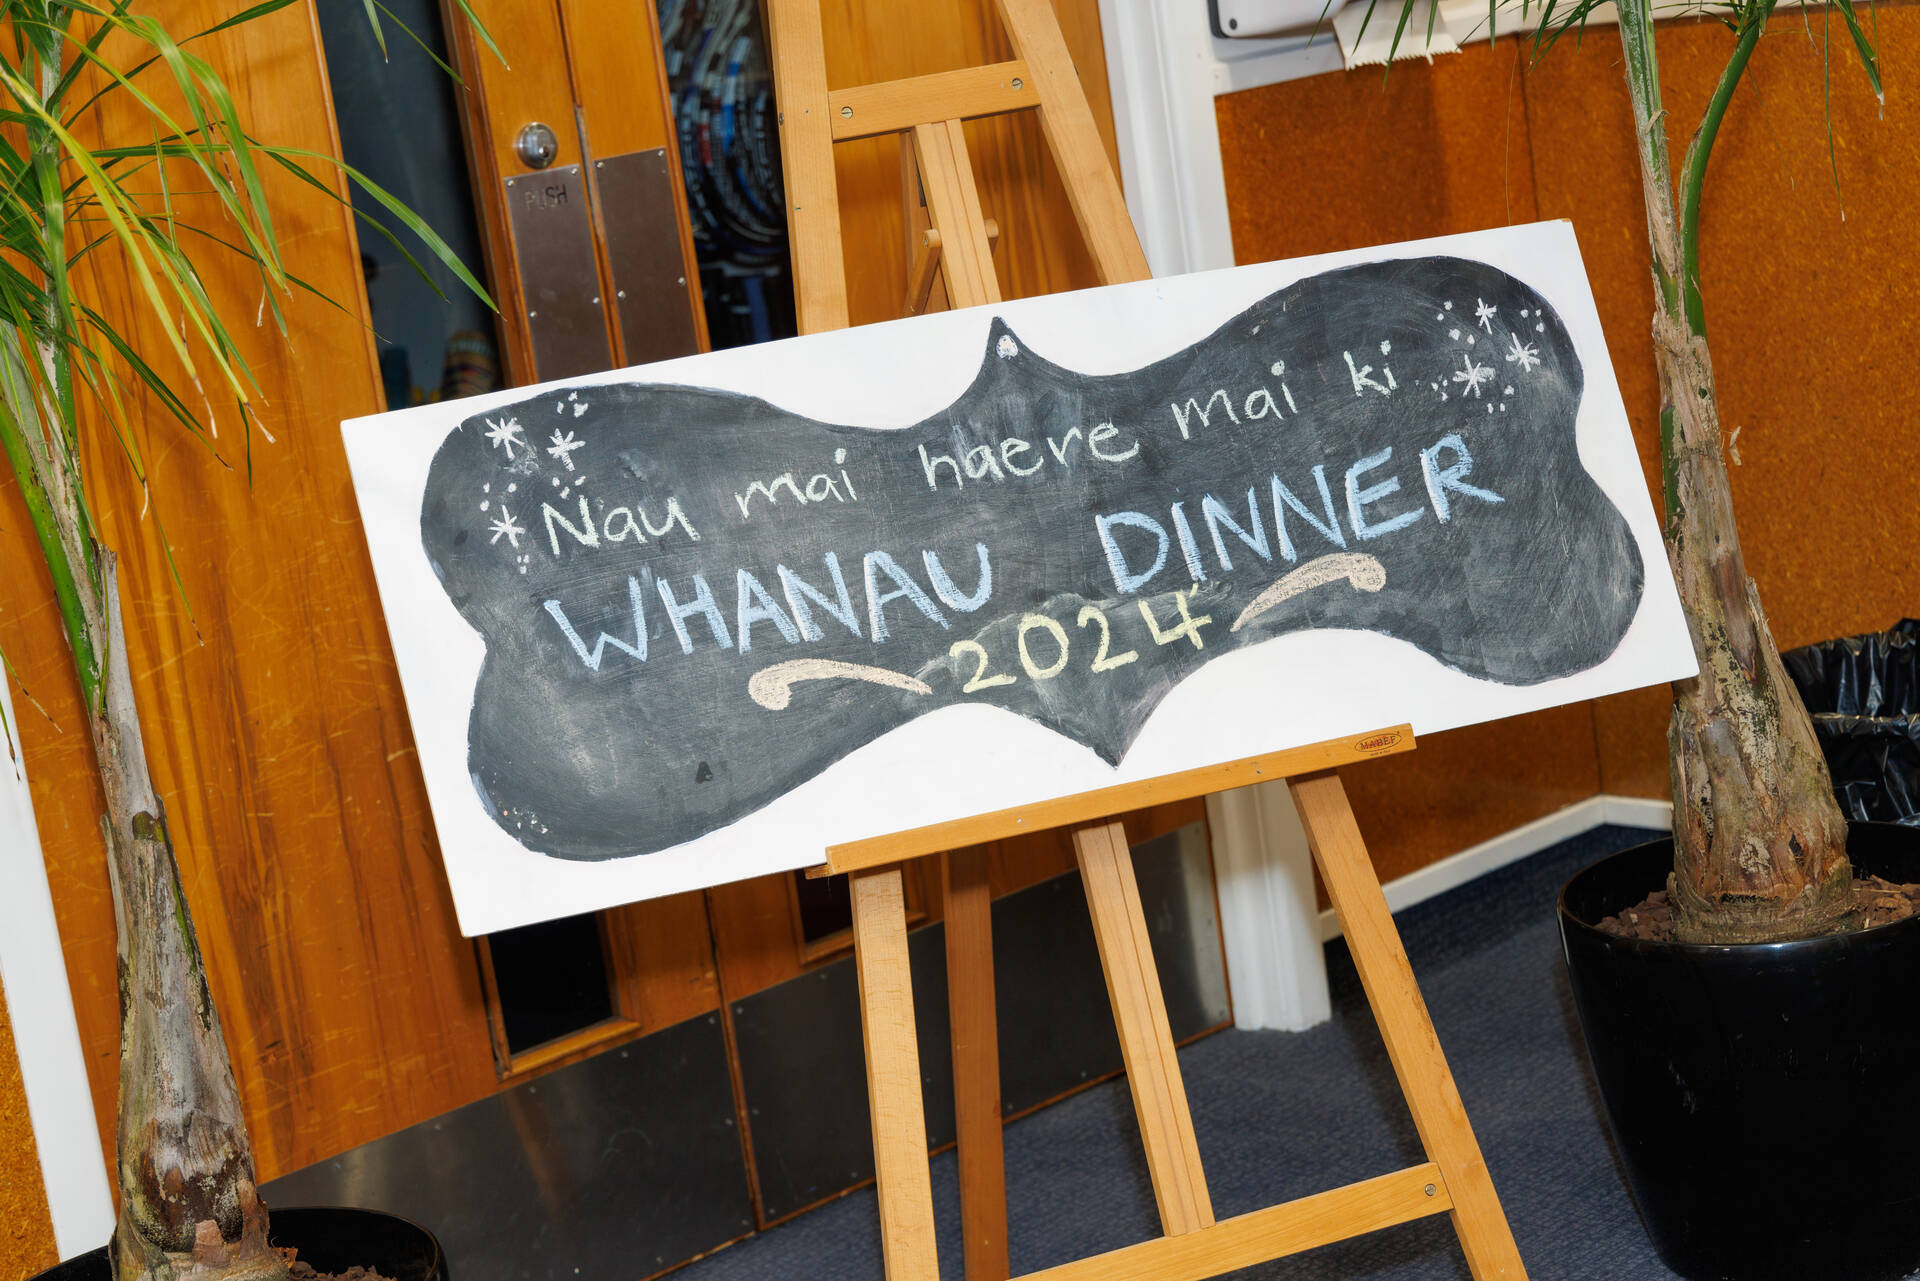 PUSH
Nau mai haere mai ki
WHANAU DINNER
2024
MABEF